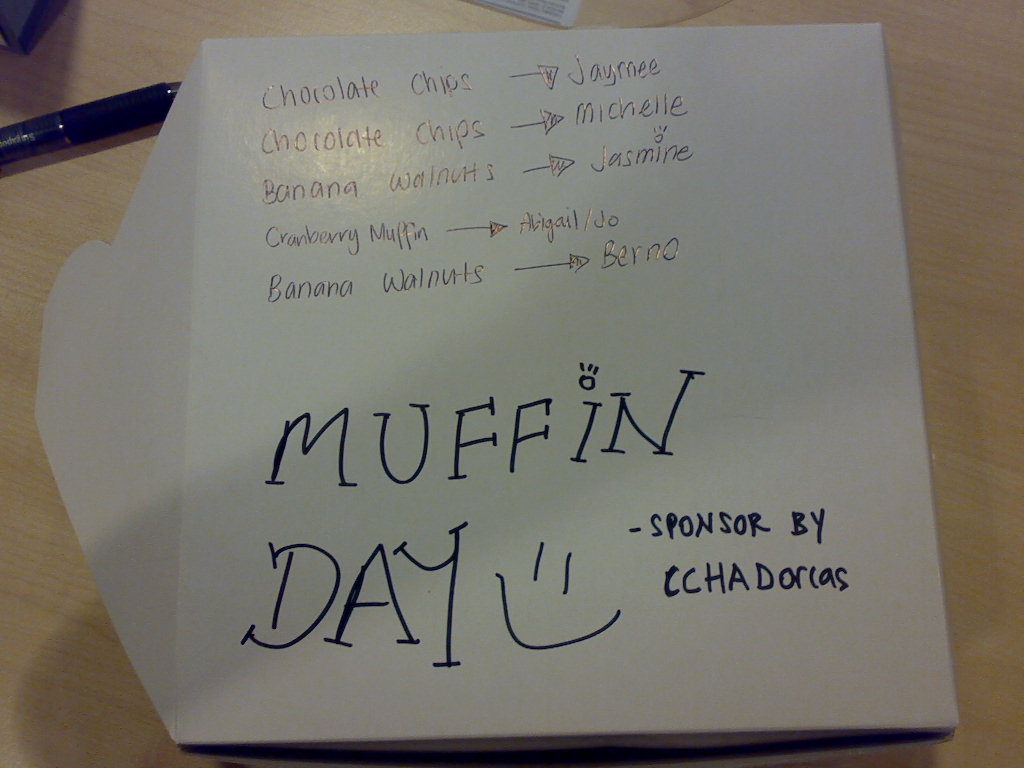 Chocolate Chips → Jaymee
Chocolate Chips → Michelle
Banana Walnuts → Jasmine
Cranberry Muffin → Abigail/Jo
Banana Walnuts → Berno
MUFFIN
DAY
- SPONSOR BY
CCHADorcas